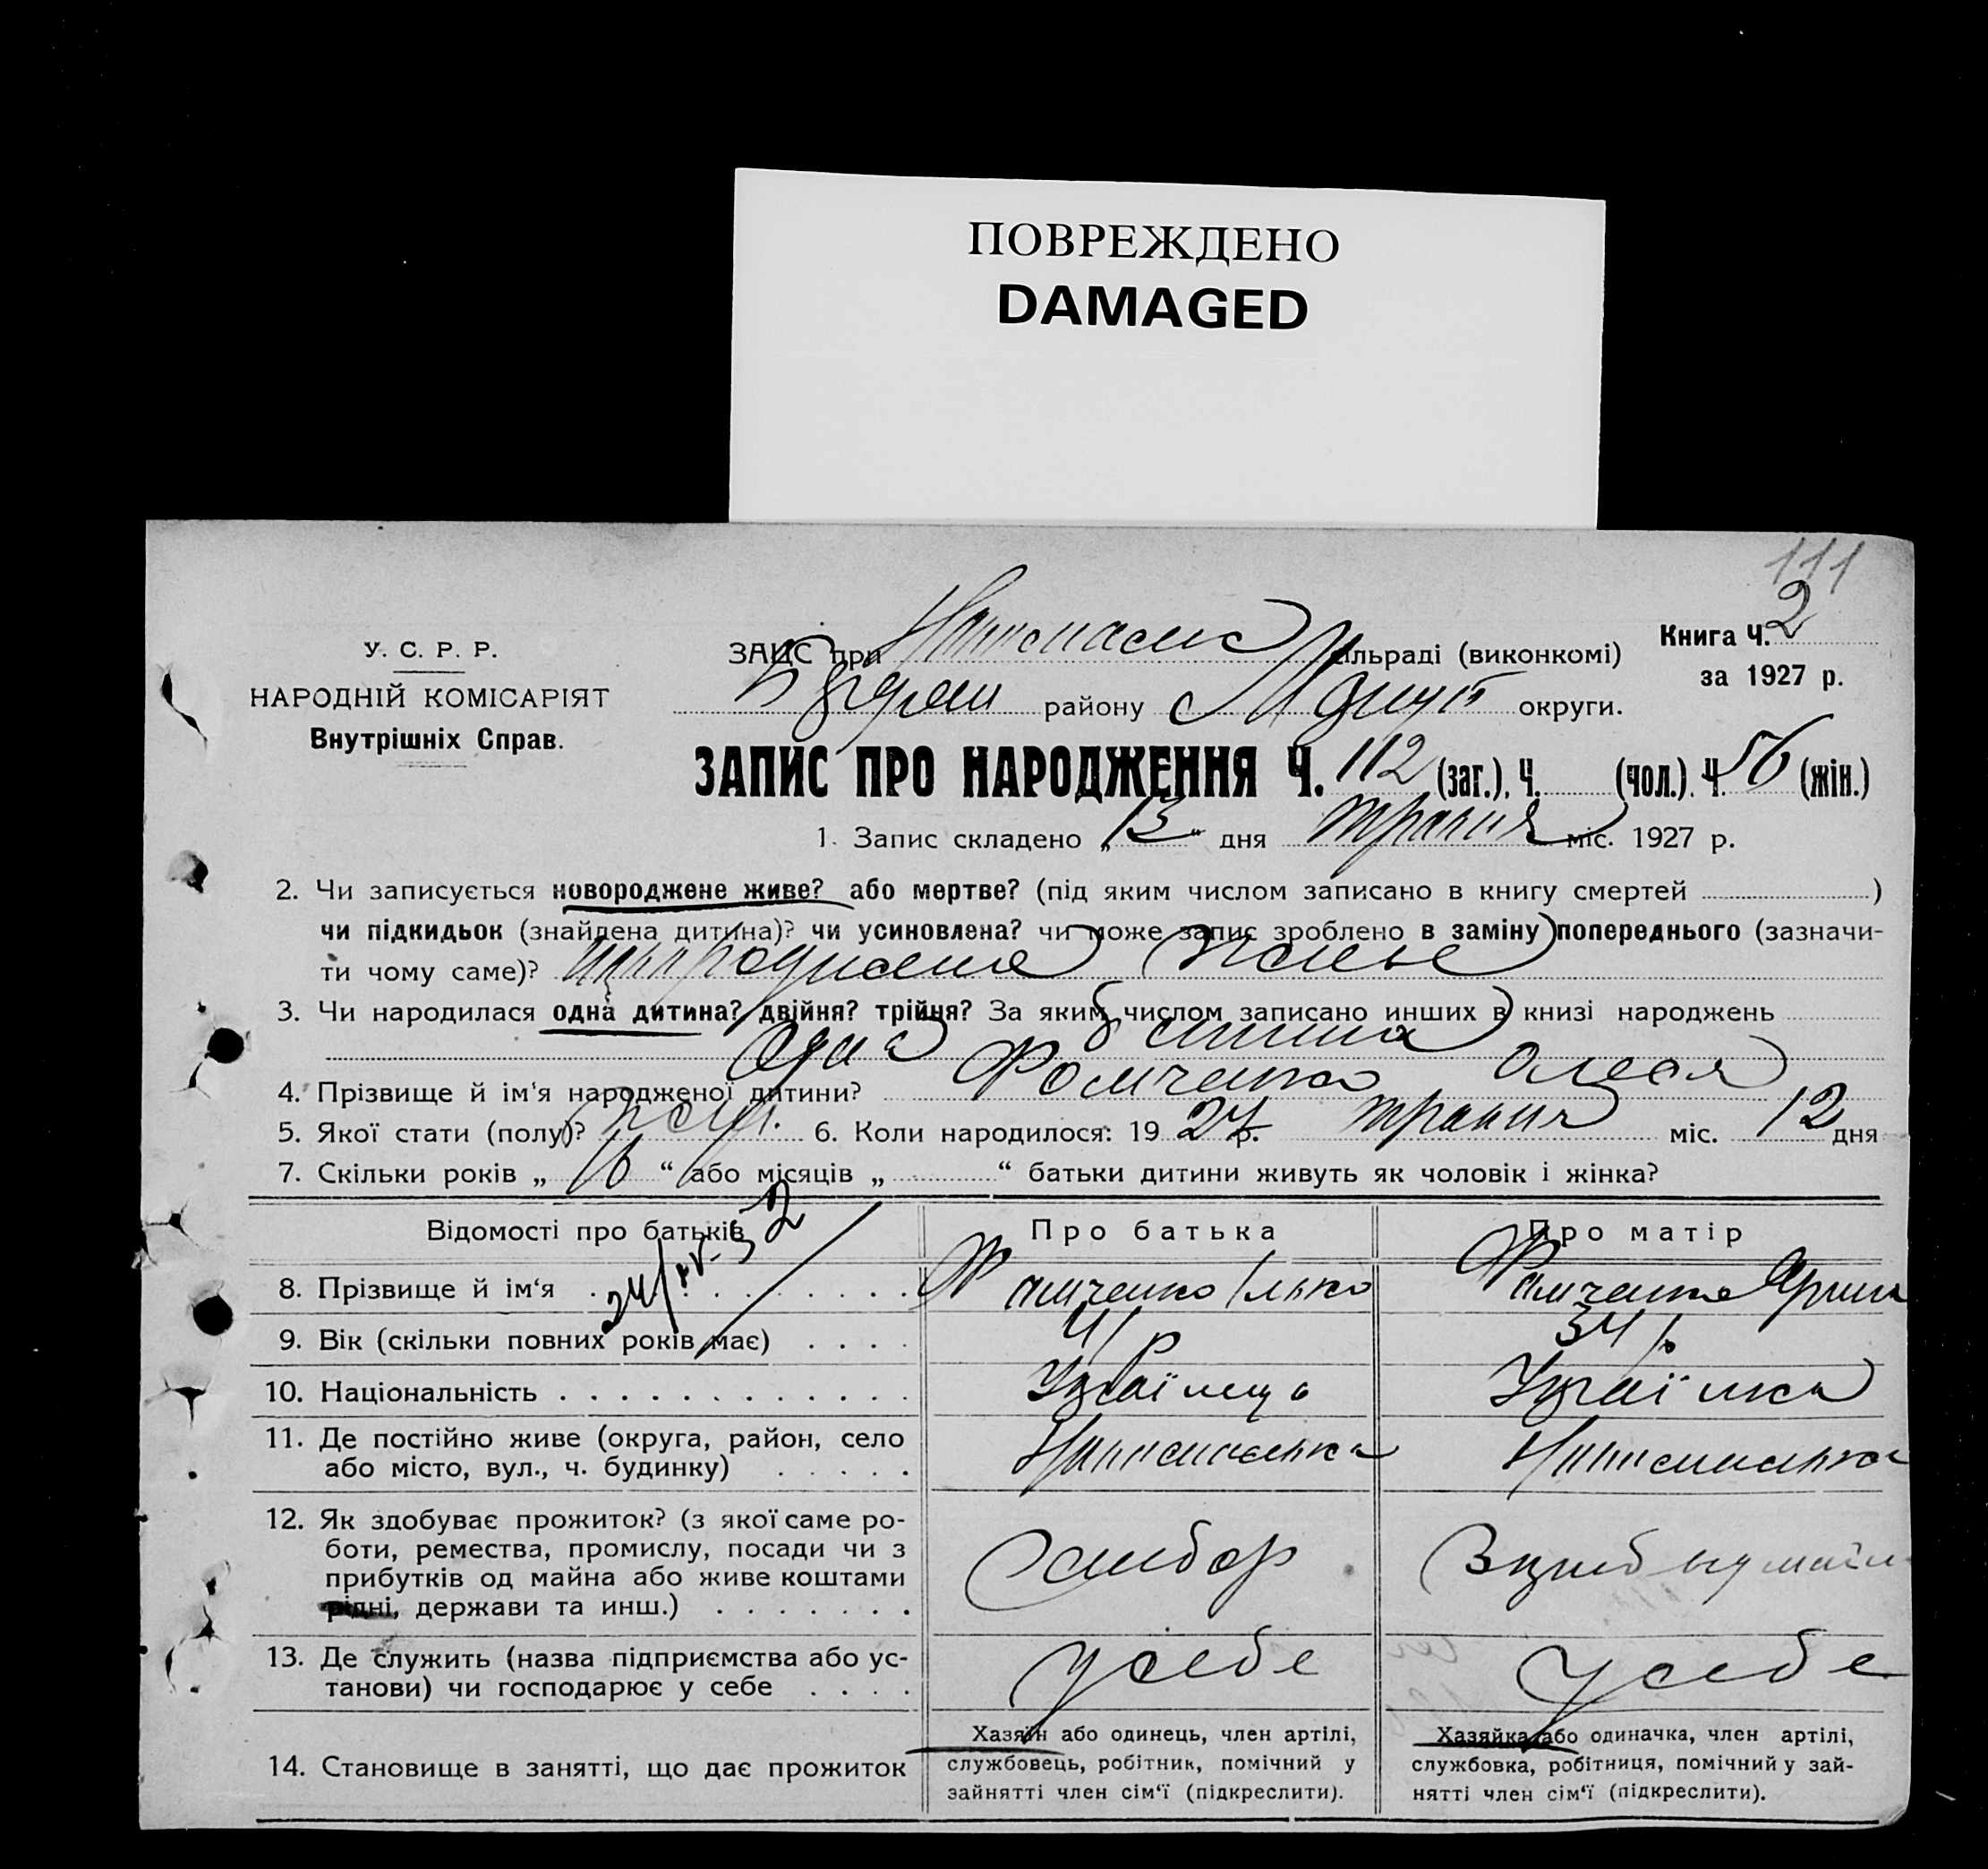 ПОВРЕЖДЕНО
DAMAGED
111
У. С. Р. Р.
НАРОДНІЙ КОМІСАРІЯТ
Внутрішніх Справ.
ЗАЦС при сільраді (виконкомі)
району округи.
Книга Ч. 2
за 1927 р.
ЗАПИС ПРО НАРОДЖЕННЯ Ч. 112 (заг.), Ч. (чол.). Ч. 56 (жін.)
1. Запис складено „ 13 “ дня травня міс. 1927 р.
2. Чи записується новороджене живе? або мертве? (під яким числом записано в книгу смертей )
чи підкидьок (знайдена дитина)? чи усиновлена? чи може запис зроблено в заміну попереднього (зазначи-
ти чому саме)?
3. Чи народилася одна дитина? двійня? трійня? За яким числом записано инших в книзі народжень
Одна
4. Прізвище й ім‘я народженої дитини? Фомченко Олеся
5. Якої стати (полу)? 6. Коли народилося: 1927 р. травня міс. 12 дня
7. Скільки років „ 16 “ або місяців „ “ батьки дитини живуть як чоловік і жінка?
Відомості про батьків Про батька Про матір
8. Прізвище й ім‘я Фомченко Ілько Фомченко Ярина
9. Вік (скільки повних років має) 41 р 34 р
10. Національність Українець Українка
11. Де постійно живе (округа, район, село
або місто, вул., ч. будинку)
12. Як здобуває прожиток? (з якої саме ро-
боти, ремества, промислу, посади чи з
прибутків од майна або живе коштами
рідні, держави та инш.) Хлібор
13. Де служить (назва підприємства або ус-
танови) чи господарює у себе у себе у себе
14. Становище в занятті, що дає прожиток
Хазяїн або одинець, член артілі,
службовець, робітник, помічний у
зайнятті член сім‘ї (підкреслити).
Хазяйка або одиначка, член артілі,
службовка, робітниця, помічний у зай-
нятті член сім‘ї (підкреслити).